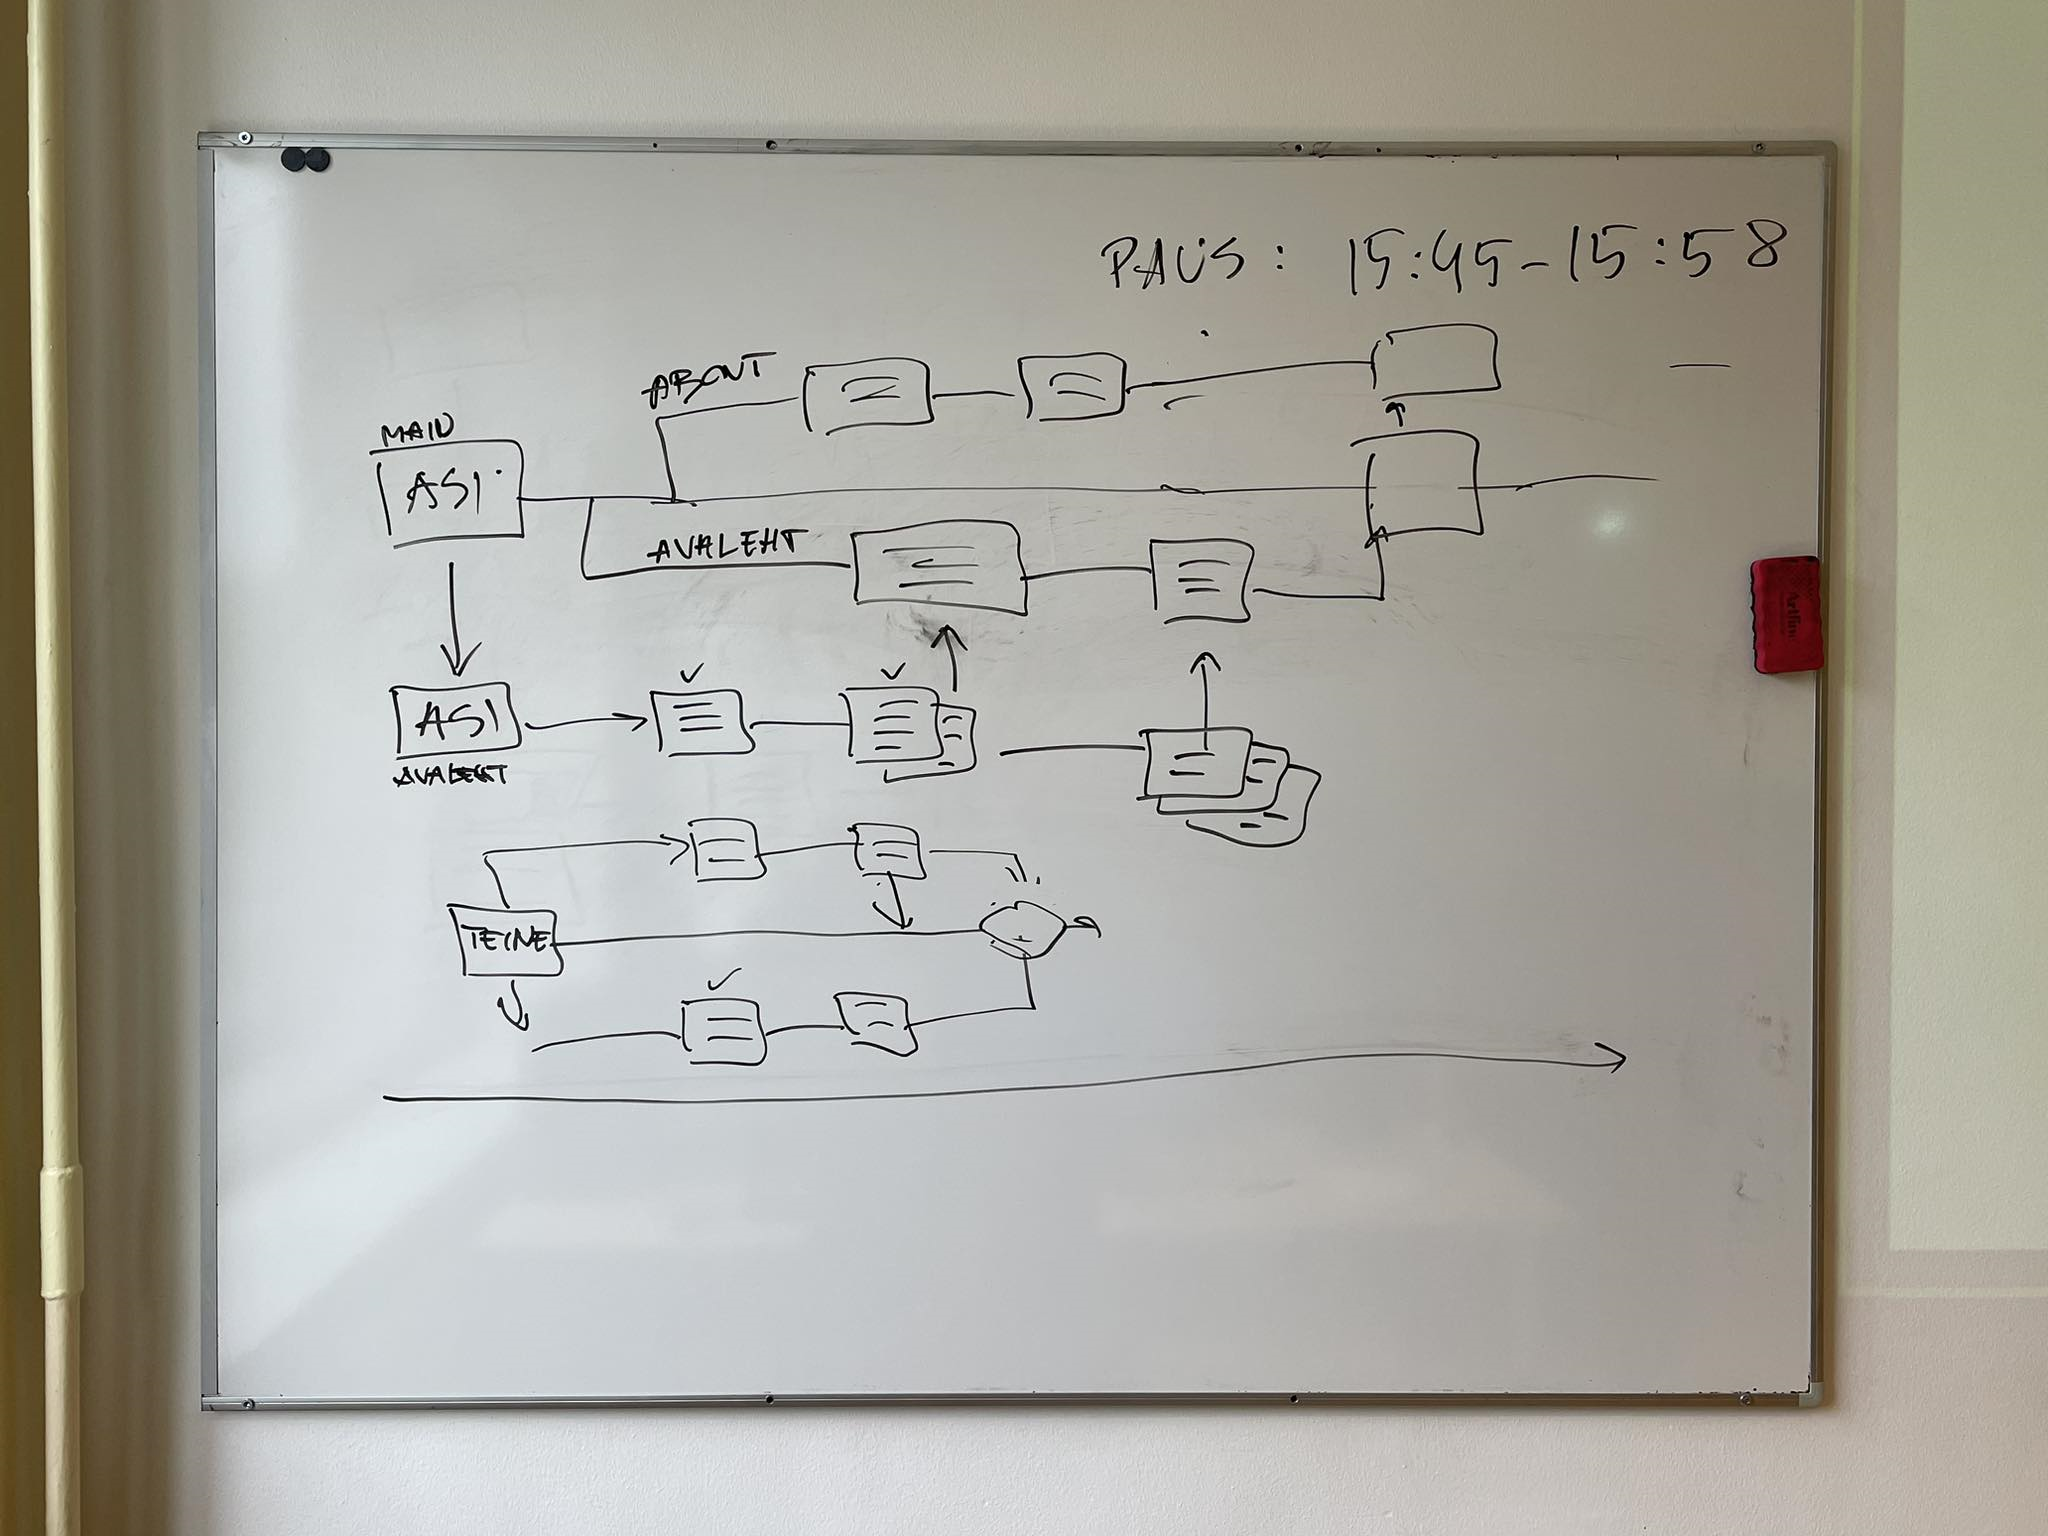 PAUS: 15:45-15:58
ABOUT
MAIN
ASI
AVALEHT
ASI
AVALEHT
TEINE